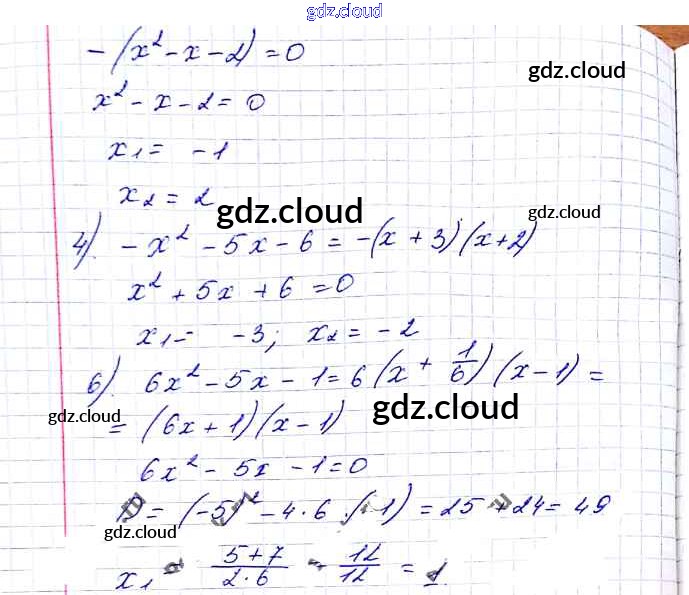 gdz.cloud
-(x² - x - 2) = 0
gdz.cloud
x² - x - 2 = 0
x₁ = -1
x₂ = 2
gdz.cloud
gdz.cloud
4). -x² - 5x - 6 = -(x + 3)(x + 2)
x² + 5x + 6 = 0
x₁ = -3; x₂ = -2
6). 6x² - 5x - 1 = 6(x + 1/6)(x - 1) =
gdz.cloud
gdz.cloud
= (6x + 1)(x - 1)
6x² - 5x - 1 = 0
D = (-5)² - 4·6·(-1) = 25 + 24 = 49
gdz.cloud
x₁ = (5+7)/(2·6) = 12/12 = 1